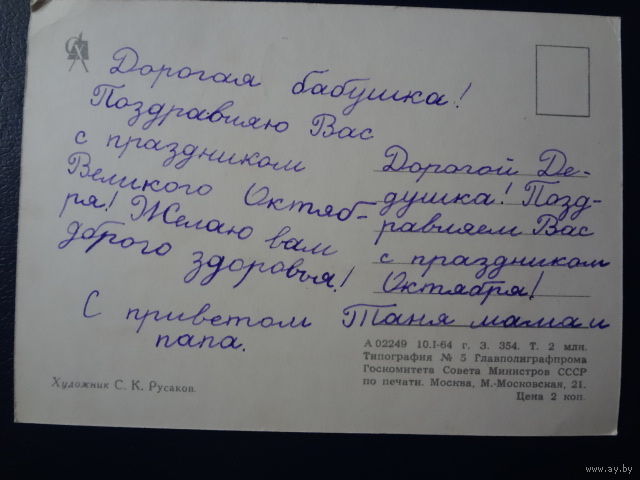 Дорогая бабушка!
Поздравляю Вас
с праздником
Великого Октяб-
ря! Желаю вам
доброго здоровья!
Дорогой Де-
душка! Позд-
равляем Вас
с праздником
Октября!
С приветом Таня мама и
папа.
Художник С. К. Русаков.
А 02249 10.I-64 г. З. 354. Т. 2 млн.
Типография № 5 Главполиграфпрома
Госкомитета Совета Министров СССР
по печати. Москва, М.-Московская, 21.
Цена 2 коп.
www.ay.by